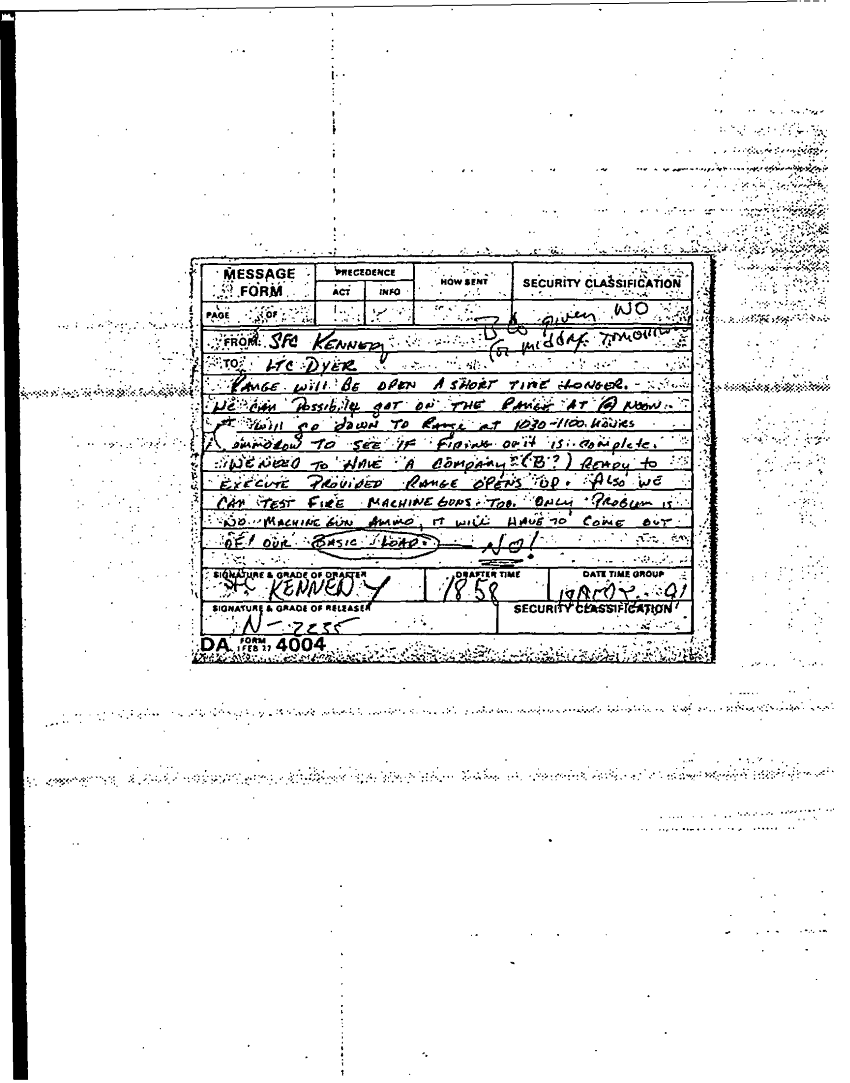 MESSAGE FORM
PRECEDENCE
ACT INFO
HOW SENT
SECURITY CLASSIFICATION
PAGE OF
B Co given WO
for midday tomorrow
FROM SFC KENNEDY
TO LTC DYER
RANGE WILL BE OPEN A SHORT TIME LONGER.
WE CAN POSSIBILY GOT ON THE RANGE AT @ NOON.
I WILL GO DOWN TO RANGE AT 1030-1100 HOURS
TOMMOROW TO SEE IF FIRING OF IT IS COMPLETE.
WE NEED TO HAVE A COMPANY (B?) READY TO
EXECUTE PROVIDED RANGE OPENS UP. ALSO WE
CAN TEST FIRE MACHINE GUNS TOO. ONLY PROBLEM IS
NO MACHINE GUN AMMO, IT WILL HAVE TO COME OUT
OF OUR BASIC LOAD. NO!
SIGNATURE & GRADE OF DRAFTER
SFC KENNEDY
DRAFTER TIME
1858
DATE TIME GROUP
91
SIGNATURE & GRADE OF RELEASER
N-2235
SECURITY CLASSIFICATION
DA FORM 4004